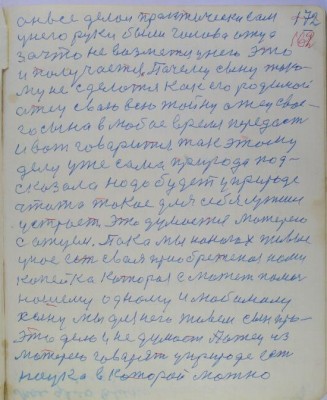 он все делал практически сам 172
у него руки были голова отца 162
за что не возмется у него это
и получается. Почему сыну тако-
му не сделатся как его родимой
отец свою всю тайну отец свое-
го сына в любое время передаст
и вот говорится так этому
делу уже сама природа под-
сказала надо будет у природе
что то такое для себя лучше
устроет это думается матерею
с отцем. Пока мы на ногах живые
у нас есть своя приобретеная нами
копейка которая сможет помоч
нашему одному и любимому
сыну мы для него живем сын про-
это дело и не думает. Потец из
матерею говорят у природе есть
наука в которой можно